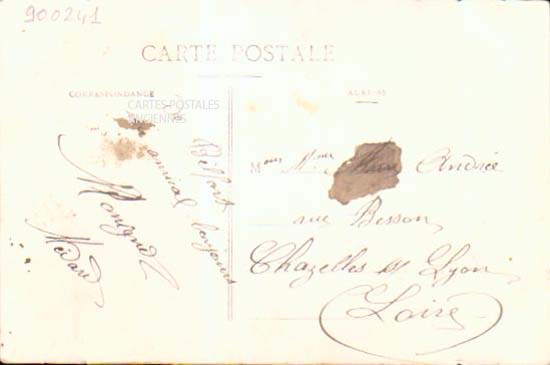 900241
CARTE POSTALE
CORRESPONDANCE
CARTES POSTALES
ANCIENNES
ADRESSE
Belfort
amical toujours
Médard
M André
rue Besson
Chazelles s/ Lyon
(Loire)